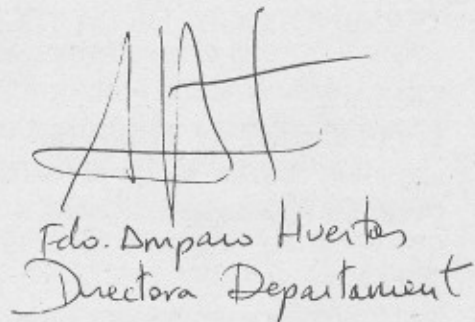 Fdo. Amparo Huertas
Directora Departament